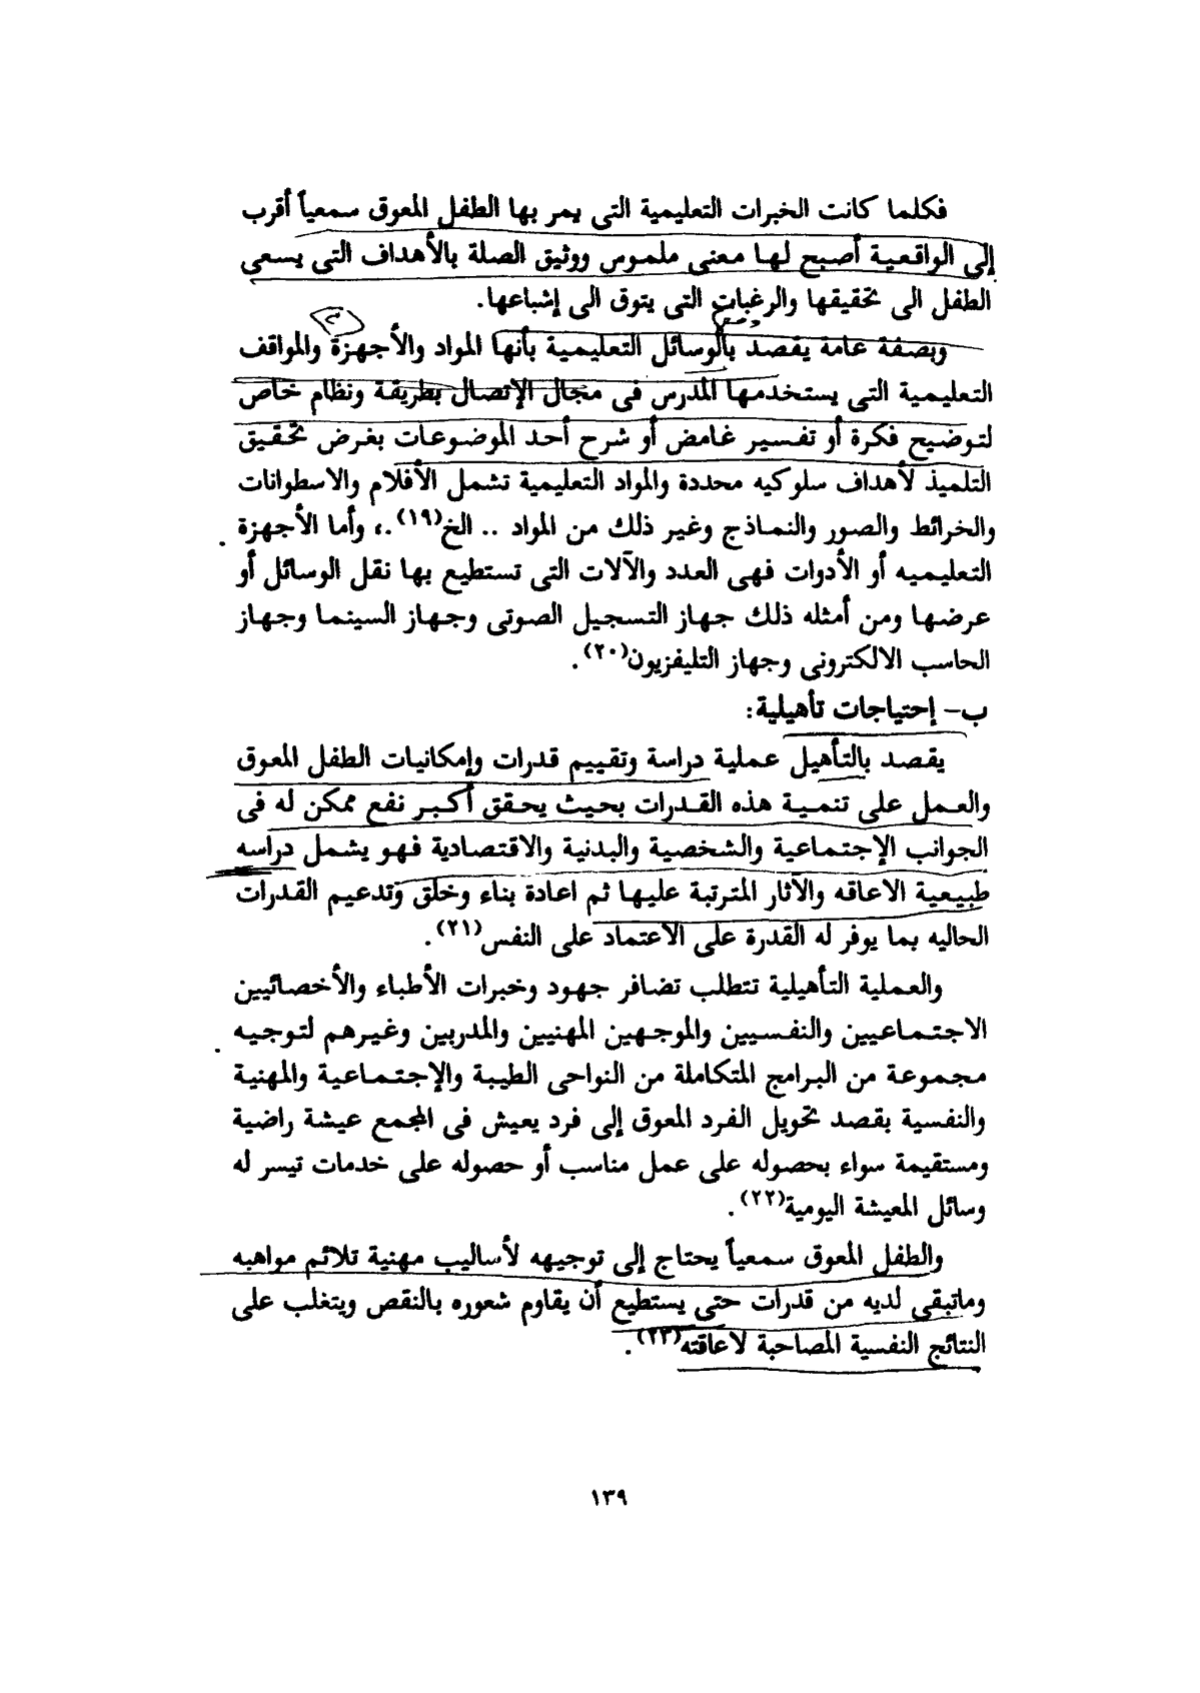 فكلما كانت الخبرات التعليمية التى يمر بها الطفل المعوق سمعياً أقرب
إلى الواقعية أصبح لها معنى ملموس ووثيق الصلة بالأهداف التى يسعى
الطفل الى تحقيقها والرغبات التى يتوق الى إشباعها.
وبصفة عامة يقصد بالوسائل التعليمية بأنها المواد والأجهزة والمواقف
التعليمية التى يستخدمها المدرس فى مجال الإتصال بطريقة ونظام خاص
لتوضيح فكرة أو تفسير غامض أو شرح أحد الموضوعات بغرض تحقيق
التلميذ لأهداف سلوكيه محددة والمواد التعليمية تشمل الأفلام والاسطوانات
والخرائط والصور والنماذج وغير ذلك من المواد .. الخ(١٩).، وأما الأجهزة
التعليميه أو الأدوات فهى العدد والآلات التى تستطيع بها نقل الوسائل أو
عرضها ومن أمثله ذلك جهاز التسجيل الصوتى وجهاز السينما وجهاز
الحاسب الالكترونى وجهاز التليفزيون(٢٠).
ب- إحتياجات تأهيلية:
يقصد بالتأهيل عملية دراسة وتقييم قدرات وإمكانيات الطفل المعوق
والعمل على تنمية هذه القدرات بحيث يحقق أكبر نفع ممكن له فى
الجوانب الإجتماعية والشخصية والبدنية والاقتصادية فهو يشمل دراسه
طبيعية الاعاقه والآثار المترتبة عليها ثم اعادة بناء وخلق وتدعيم القدرات
الحاليه بما يوفر له القدرة على الاعتماد على النفس(٢١).
والعملية التأهيلية تتطلب تضافر جهود وخبرات الأطباء والأخصائيين
الاجتماعيين والنفسيين والموجهين المهنيين والمدربين وغيرهم لتوجيه
مجموعة من البرامج المتكاملة من النواحى الطيبة والإجتماعية والمهنية
والنفسية بقصد تحويل الفرد المعوق إلى فرد يعيش فى المجمع عيشة راضية
ومستقيمة سواء بحصوله على عمل مناسب أو حصوله على خدمات تيسر له
وسائل المعيشة اليومية(٢٢).
والطفل المعوق سمعياً يحتاج إلى توجيهه لأساليب مهنية تلائم مواهبه
وماتبقى لديه من قدرات حتى يستطيع أن يقاوم شعوره بالنقص ويتغلب على
النتائج النفسية المصاحبة لاعاقته(٢٣).
١٣٩